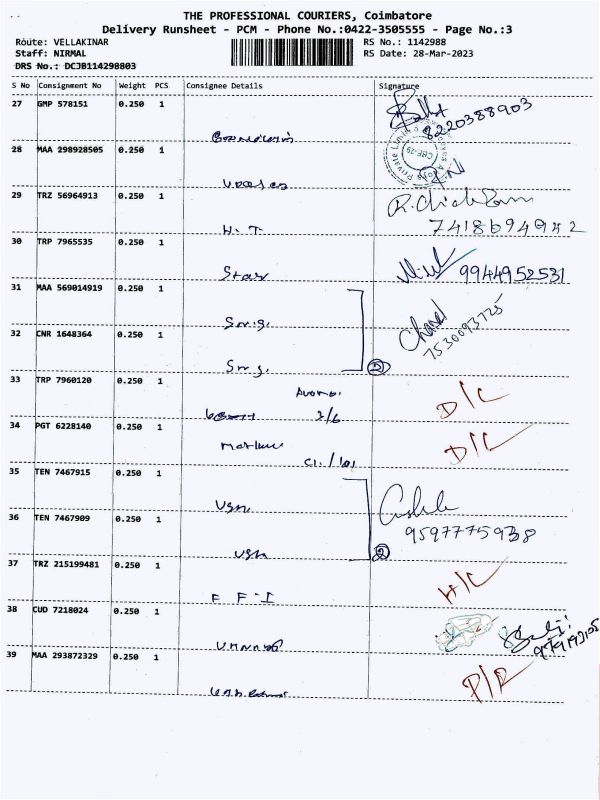 THE PROFESSIONAL COURIERS, Coimbatore
Delivery Runsheet - PCM - Phone No.:0422-3505555 - Page No.:3
Route: VELLAKINAR RS No.: 1142988
Staff: NIRMAL RS Date: 28-Mar-2023
DRS No.: DCJB114298803
S No Consignment No Weight PCS Consignee Details Signature
27 GMP 578151 0.250 1
8220388903
28 MAA 298928505 0.250 1
CBE-29
29 TRZ 56964913 0.250 1
7418694942
H. T
30 TRP 7965535 0.250 1
Star 9944952531
31 MAA 569014919 0.250 1
Sm.g.
7530093725
32 CNR 1648364 0.250 1
Sm.g.
33 TRP 7960120 0.250 1
D/C
3/6
34 PGT 6228140 0.250 1
D/C
C1./101
35 TEN 7467915 0.250 1
VGN
36 TEN 7467909 0.250 1
9597775938
VGN
37 TRZ 215199481 0.250 1
H/C
F F - I
38 CUD 7218024 0.250 1
39 MAA 293872329 0.250 1
P/R